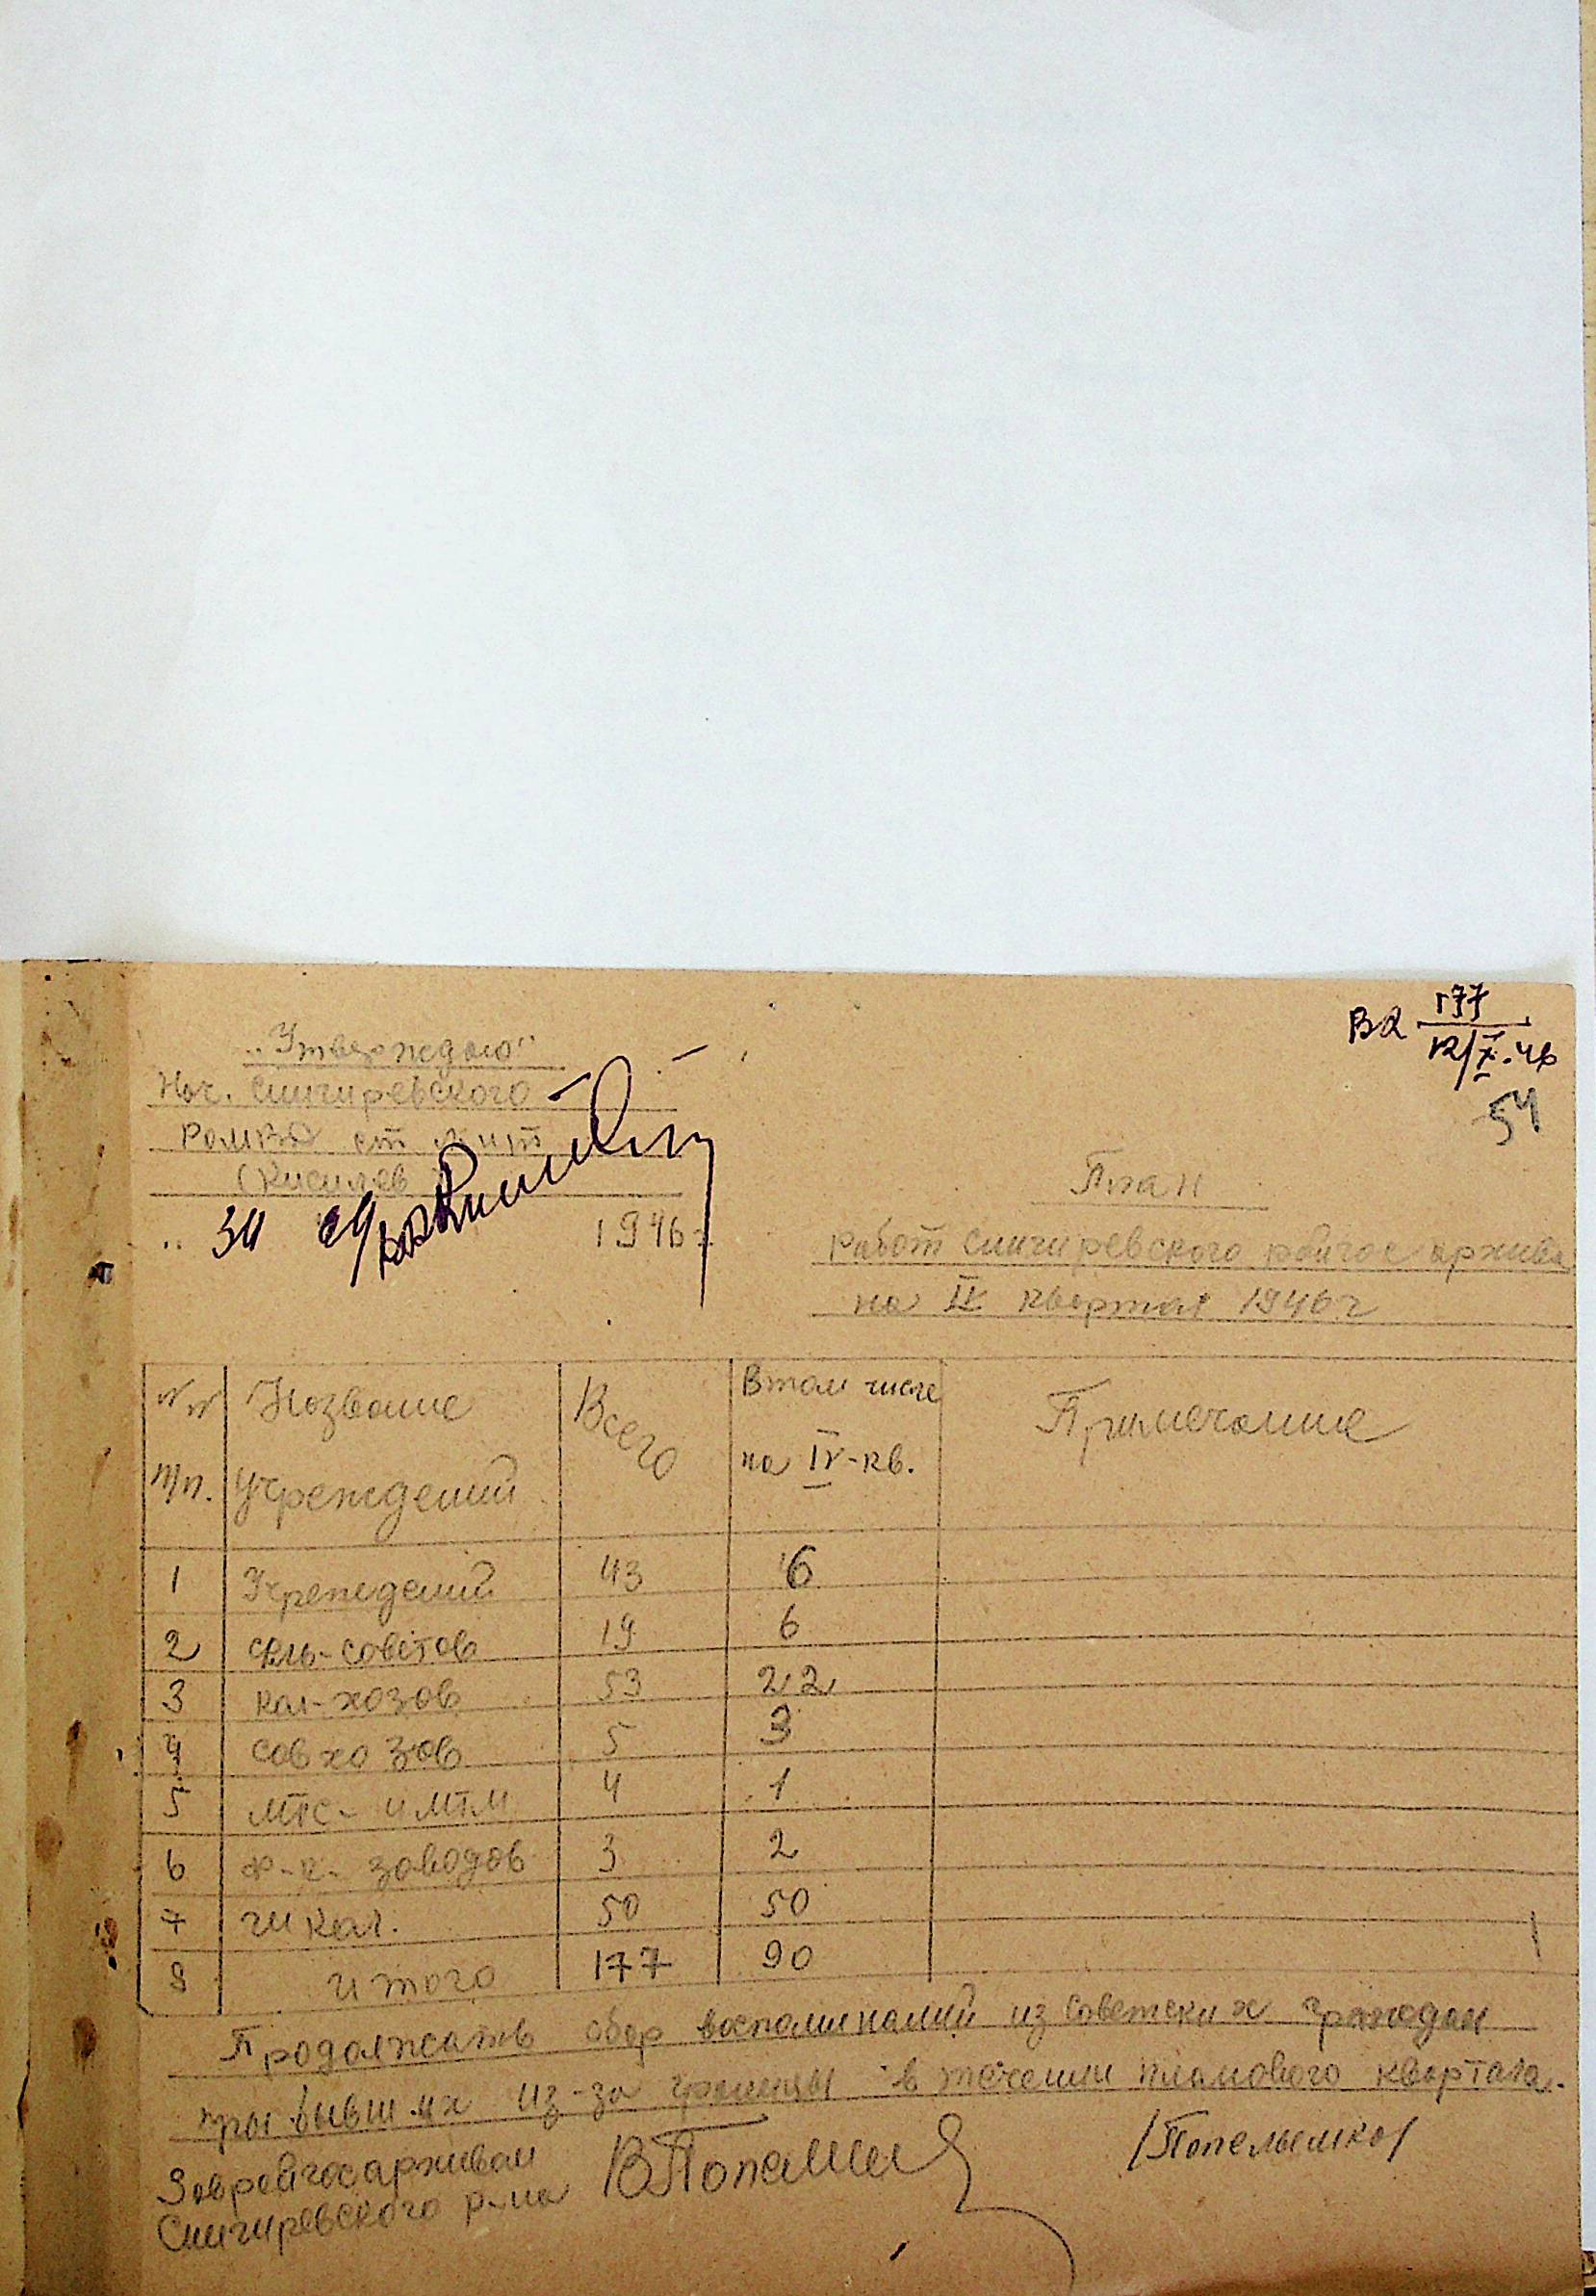 Вх 177
12/X.46
54
„Утверждаю"
Нач. Снигиревского
РОМВД ст. лейт
(Киселев
" 1946 г.
План
работ Снигиревского райгосархива
на IV квартал 1946 г
№№ п/п. Название учреждений Всего В том числе на IV-кв. Примечание
1 Учреждений 43 6
2 сель-советов 19 6
3 кол-хозов 53 22
4 совхозов 5 3
5 МТС- и МТМ 4 1
6 заводов 3 2
7 школ. 50 50
8 итого 177 90
Продолжать сбор воспоминаний из советских граждан
прибывших из-за границы в течении планового квартала.
Заврайгосархивом
Снигиревского р-на